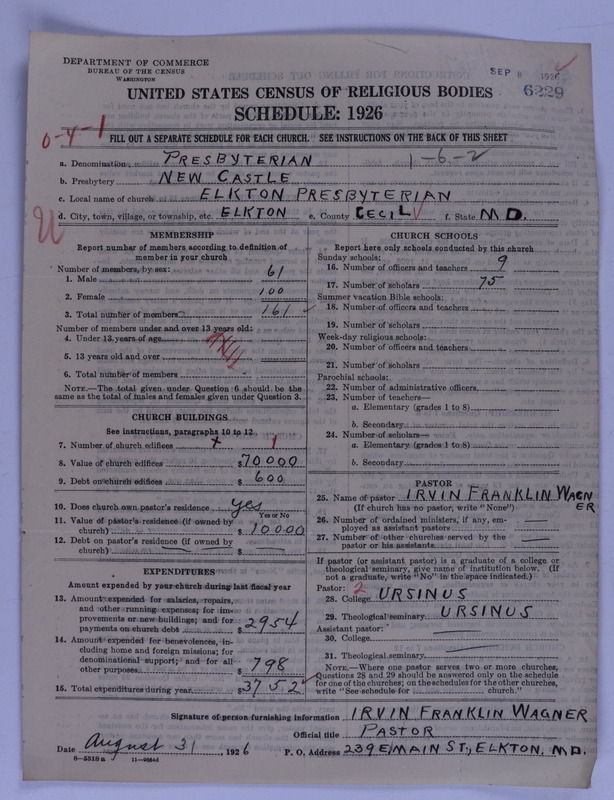 DEPARTMENT OF COMMERCE
BUREAU OF THE CENSUS
WASHINGTON
SEP 8 1926
6229
UNITED STATES CENSUS OF RELIGIOUS BODIES
SCHEDULE: 1926
0-4-1
FILL OUT A SEPARATE SCHEDULE FOR EACH CHURCH. SEE INSTRUCTIONS ON THE BACK OF THIS SHEET
a. Denomination PRESBYTERIAN 1-6-2
b. Presbytery NEW CASTLE
c. Local name of church ELKTON PRESBYTERIAN
d. City, town, village, or township, etc. ELKTON e. County CECIL f. State MD.
U
MEMBERSHIP
Report number of members according to definition of
member in your church
Number of members, by sex:
1. Male 61
2. Female 100
3. Total number of members 161
Number of members under and over 13 years old:
4. Under 13 years of age
5. 13 years old and over
6. Total number of members
NOTE.—The total given under Question 6 should be the
same as the total of males and females given under Question 3.
CHURCH BUILDINGS
See instructions, paragraphs 10 to 12
7. Number of church edifices 1
8. Value of church edifices $70000
9. Debt on church edifices $ 600
10. Does church own pastor's residence yes
Yes or No
11. Value of pastor's residence (if owned by
church) $ 10000
12. Debt on pastor's residence (if owned by
church) $
EXPENDITURES
Amount expended by your church during last fiscal year
13. Amount expended for salaries, repairs,
and other running expenses; for im-
provements or new buildings; and for
payments on church debt $ 2954
14. Amount expended for benevolences, in-
cluding home and foreign missions; for
denominational support; and for all
other purposes $ 798
15. Total expenditures during year $3752
CHURCH SCHOOLS
Report here only schools conducted by this church
Sunday schools:
16. Number of officers and teachers 9
17. Number of scholars 75
Summer vacation Bible schools:
18. Number of officers and teachers
19. Number of scholars
Week-day religious schools:
20. Number of officers and teachers
21. Number of scholars
Parochial schools:
22. Number of administrative officers
23. Number of teachers—
a. Elementary (grades 1 to 8)
b. Secondary
24. Number of scholars—
a. Elementary (grades 1 to 8)
b. Secondary
PASTOR
25. Name of pastor IRVIN FRANKLIN WAGN
ER
(If church has no pastor, write "None")
26. Number of ordained ministers, if any, em-
ployed as assistant pastors
27. Number of other churches served by the
pastor or his assistants
If pastor (or assistant pastor) is a graduate of a college or
theological seminary, give name of institution below. (If
not a graduate, write "No" in the space indicated.)
Pastor: 2
28. College URSINUS
29. Theological seminary URSINUS
Assistant pastor:
30. College
31. Theological seminary
NOTE.—Where one pastor serves two or more churches,
Questions 28 and 29 should be answered only on the schedule
for one of the churches; on the schedules for the other churches,
write "See schedule for church."
Signature of person furnishing information IRVIN FRANKLIN WAGNER
Official title PASTOR
Date August 31, 1926 P. O. Address 239 E. MAIN ST., ELKTON, MD.
8-5518 a